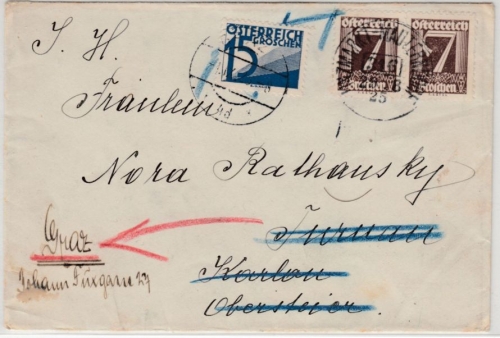 ÖSTERREICH
15 GROSCHEN
Österreich Österreich
7 7
Groschen Groschen
25
I. H.
Fräulein
Nora Rathausky
Turnau
Graz
Karlon
Johann Fuxgasse 29
Obersteier.